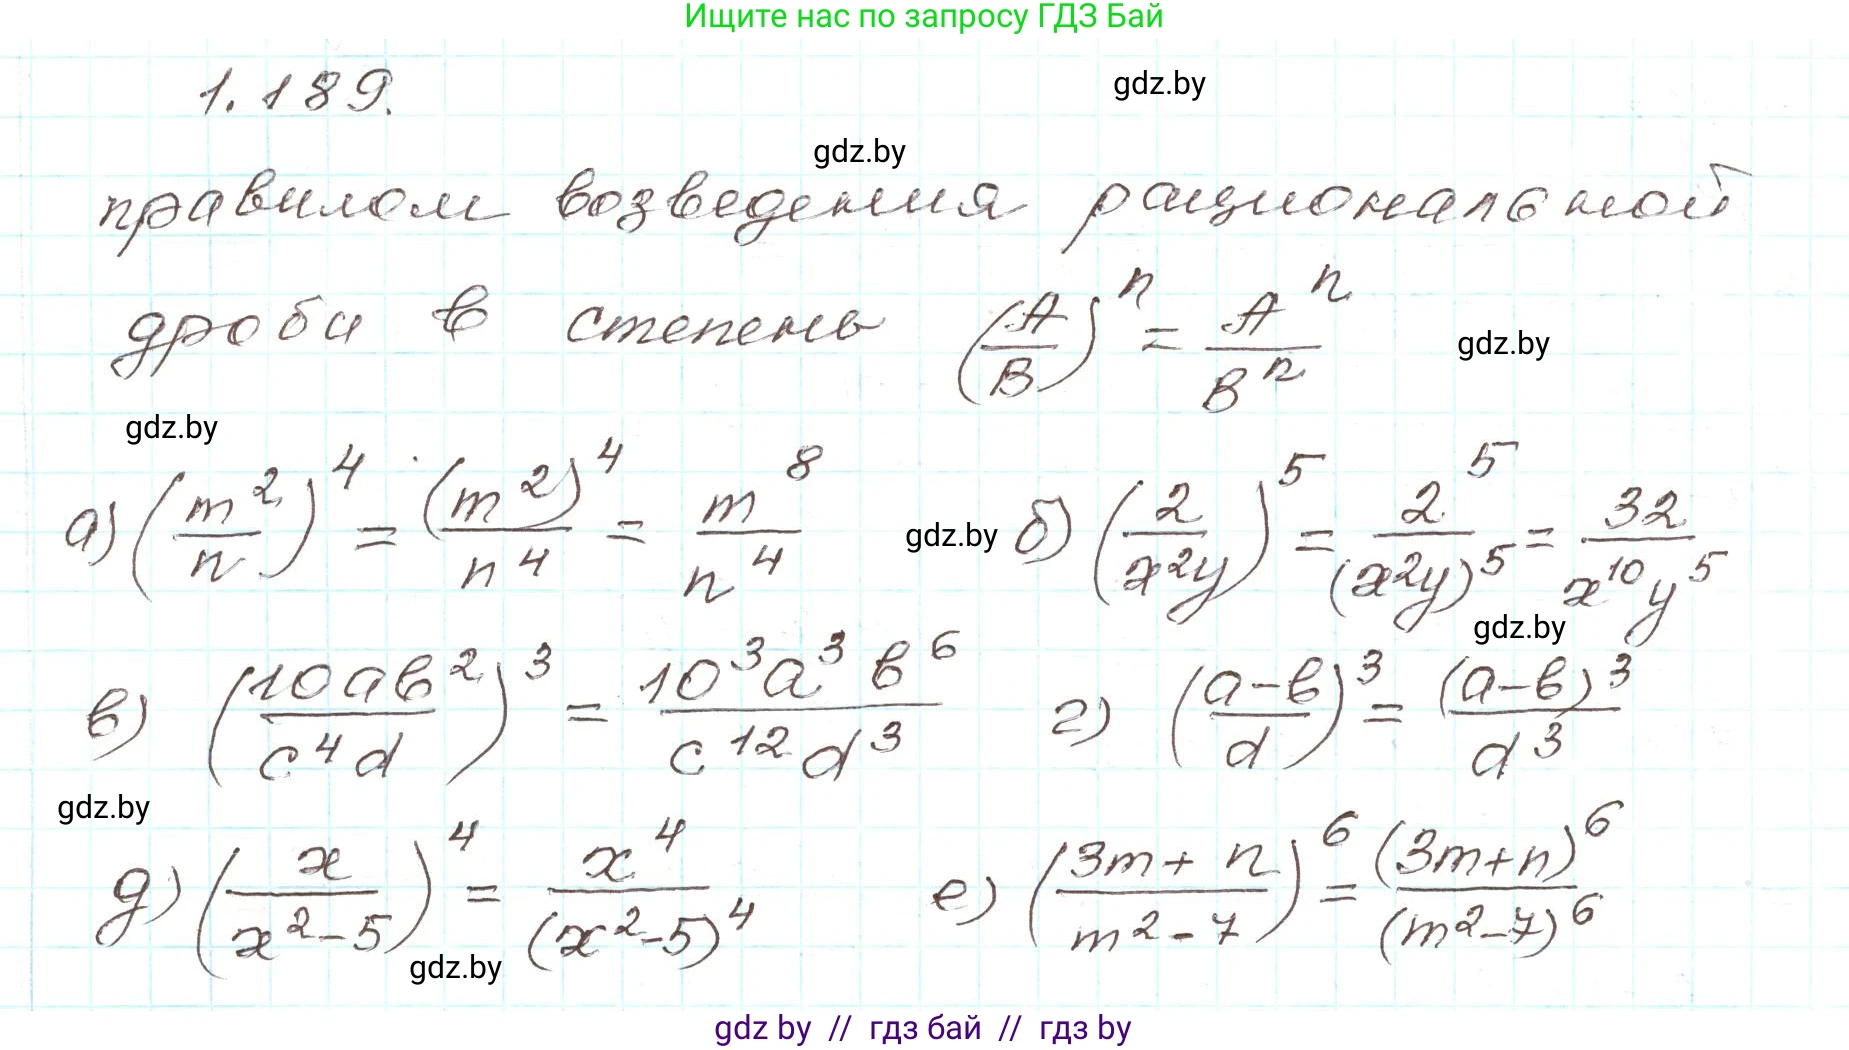 Ищите нас по запросу ГДЗ Бай
1.189. gdz.by
gdz.by
правилом возведения рациональной
дроби в степень (A/B)^n = A^n/B^n gdz.by
gdz.by
а) (m²/n)^4 = (m²)^4/n^4 = m^8/n^4 gdz.by б) (2/x²y)^5 = 2^5/(x²y)^5 = 32/x^10y^5
gdz.by
в) (10ab²/c⁴d)^3 = 10³a³b⁶/c¹²d³ г) (a-b/d)^3 = (a-b)³/d³
gdz.by
д) (x/x²-5)^4 = x⁴/(x²-5)⁴ е) (3m+n/m²-7)^6 = (3m+n)⁶/(m²-7)⁶
gdz.by
gdz by // гдз бай // гдз by